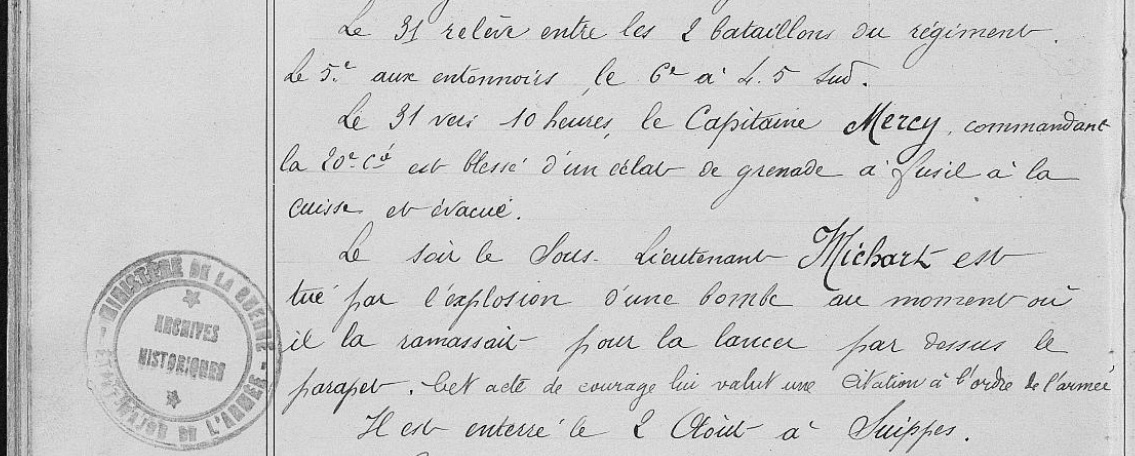 Le 31 relève entre les 2 bataillons du régiment.
Le 5e aux entonnoirs, le 6e à L.5 Sud.
Le 31 vers 10 heures, le Capitaine Mercy, commandant
la 20e Cie est blessé d'un éclat de grenade à fusil à la
cuisse et évacué.
Le soir le Sous-Lieutenant Michart est
tué par l'explosion d'une bombe au moment où
il la ramassait pour la lancer par dessus le
parapet. Cet acte de courage lui valut une citation à l'ordre de l'armée
Il est enterré le 2 Août à Suippes.
MINISTÈRE DE LA GUERRE
ÉTAT-MAJOR DE L'ARMÉE
ARCHIVES
HISTORIQUES